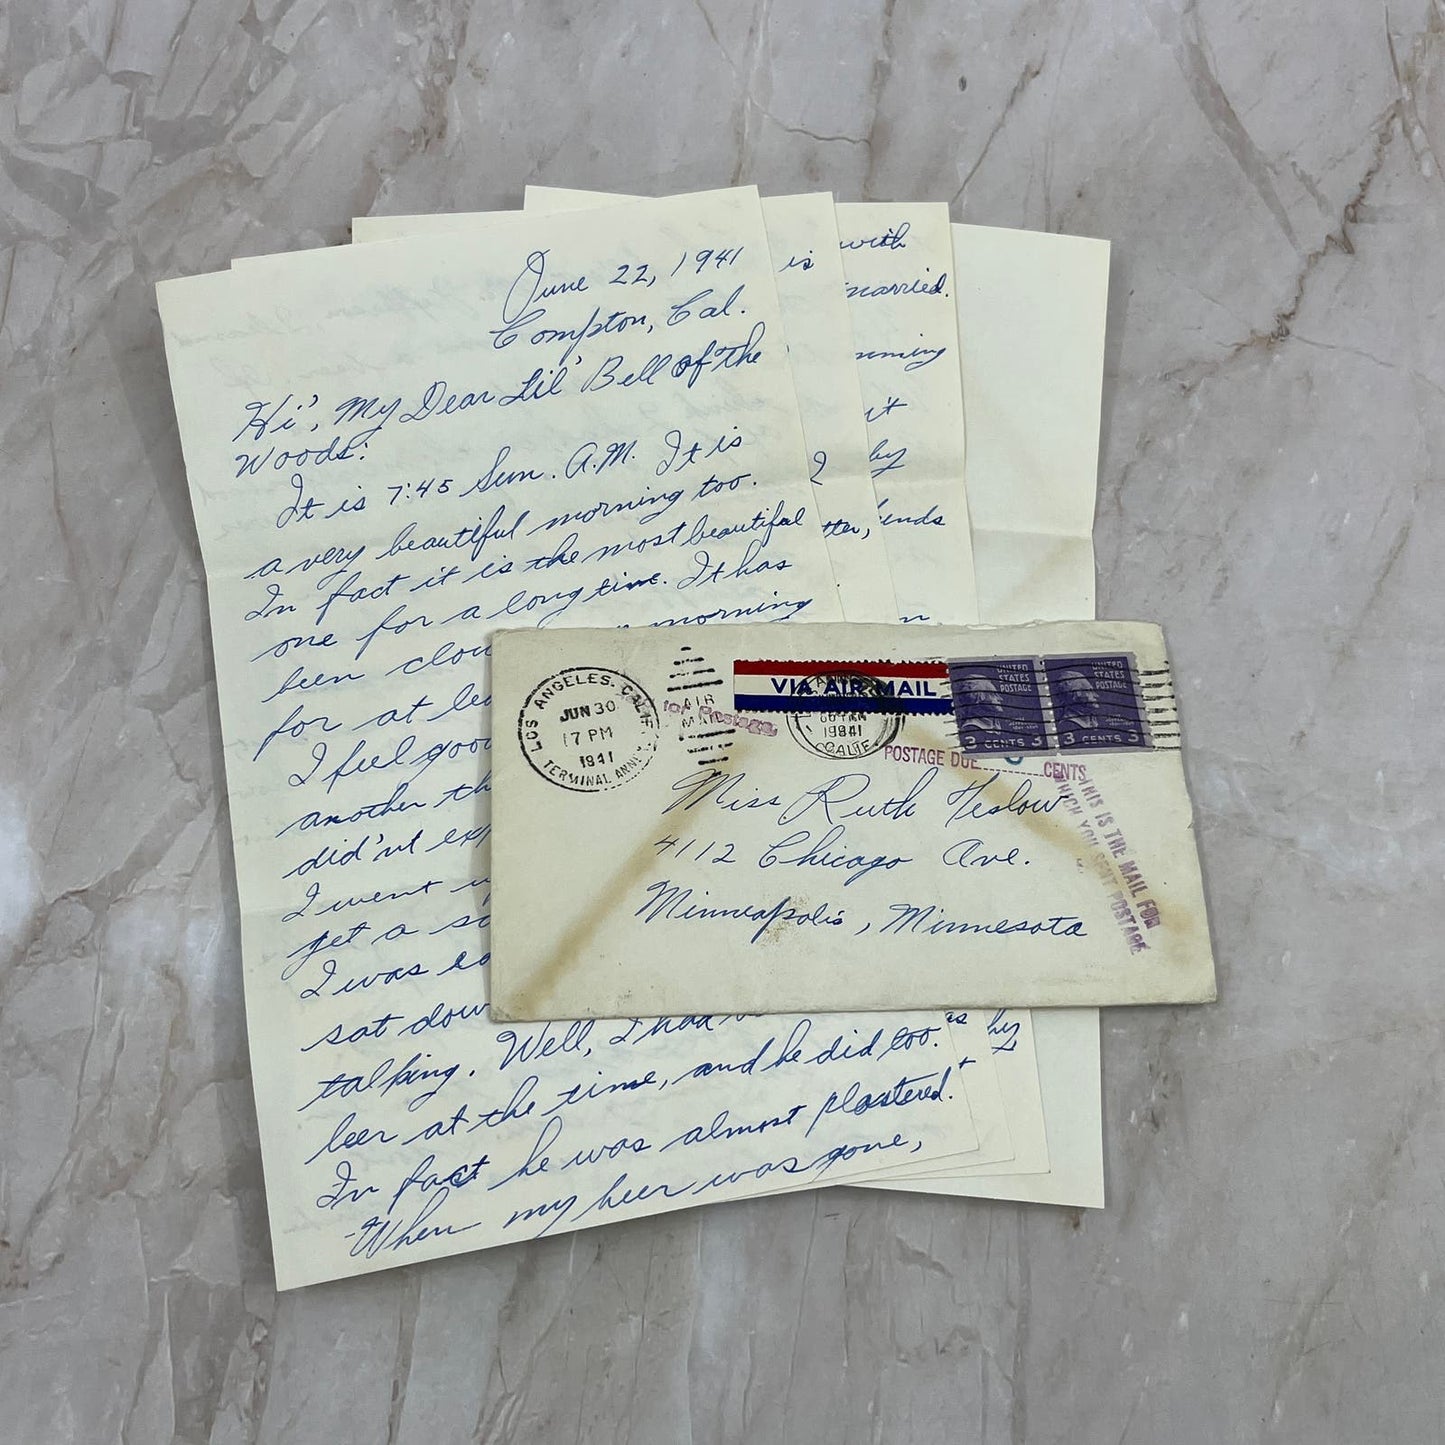 June 22, 1941
Compton, Cal.
Hi', My Dear Lil' Bell of the
Woods:
It is 7:45 Sun. A.M. It is
a very beautiful morning too.
In fact it is the most beautiful
one for a long time. It has
been clou morning
for at lea
I feel good
another th
did'nt exp
I went u
get a so
I was ea
sat down
talking. Well, I had
beer at the time, and he did too.
In fact he was almost plastered.
When my beer was gone,
is
2
tter,
with
married.
mming
it
by
ends
n
is
by
LOS ANGELES, CALIF.
JUN 30
17 PM
1941
TERMINAL ANNEX
AIR
MAIL
for Postage
VIA AIR MAIL
1941
CALIF.
UNITED
STATES
POSTAGE
3 CENTS 3
UNITED
STATES
POSTAGE
3 CENTS 3
POSTAGE DUE CENTS
THIS IS THE MAIL FOR
WHICH YOU SENT POSTAGE
Miss Ruth Teslow
4112 Chicago Ave.
Minneapolis, Minnesota